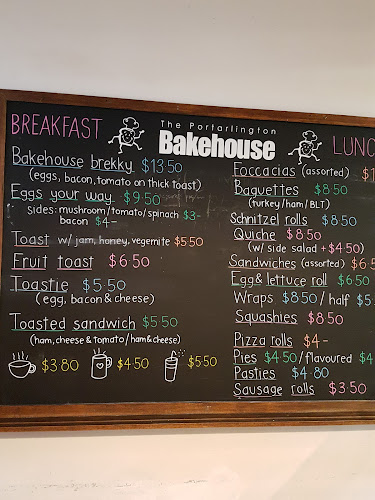 The Portarlington
Bakehouse
BREAKFAST
Bakehouse brekky $13·50
(eggs, bacon, tomato on thick toast)
Eggs your way $9·50
sides: mushroom/tomato/spinach $3-
bacon $4-
Toast w/ jam, honey, vegemite $5·50
Fruit toast $6·50
Toastie $5·50
(egg, bacon & cheese)
Toasted sandwich $5·50
(ham, cheese & tomato / ham & cheese)
$3·80 $4·50 $5·50
LUNC
Foccacias (assorted) $1
Baguettes $8·50
(turkey/ham/BLT)
Schnitzel rolls $8·50
Quiche $8·50
(w/ side salad + $4·50)
Sandwiches (assorted) $6·5
Egg & lettuce roll $6·5
Wraps $8·50 / half $5·
Squashies $8·50
Pizza rolls $4-
Pies $4·50 / flavoured $4
Pasties $4·80
Sausage rolls $3·50